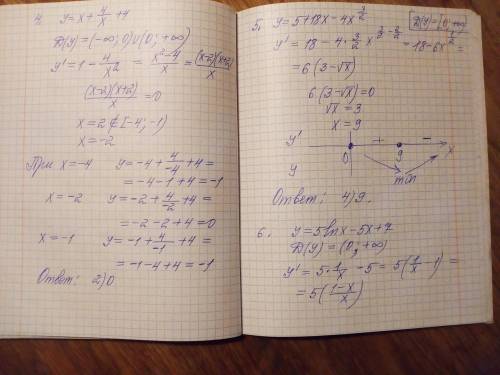 4. y = x + 4/x + 4
D(y) = (-∞; 0) ∪ (0; +∞)
y' = 1 - 4/x² = x²-4/x = (x-2)(x+2)/x
(x-2)(x+2)/x = 0
x = 2 ∉ [-4; -1)
x = -2
При x = -4 y = -4 + 4/-4 + 4 =
= -4 -1 + 4 = -1
x = -2 y = -2 + 4/-2 + 4 =
= -2 - 2 + 4 = 0
x = -1 y = -1 + 4/-1 + 4 =
= -1 - 4 + 4 = -1
Ответ: 2) 0
5. y = 5 + 18x - 4x^3/2 D(y) = [0; +∞)
y' = 18 - 4 · 3/2 x^3/2-2/2 = 18 - 6x^1/2 =
= 6(3 - √x)
6(3 - √x) = 0
√x = 3
x = 9
y' + -
0 9 x
y
min
Ответ: 4) 9.
6. y = 5 ln x - 5x + 7
D(y) = (0; +∞)
y' = 5 · 1/x - 5 = 5(1/x - 1) =
= 5(1-x/x)